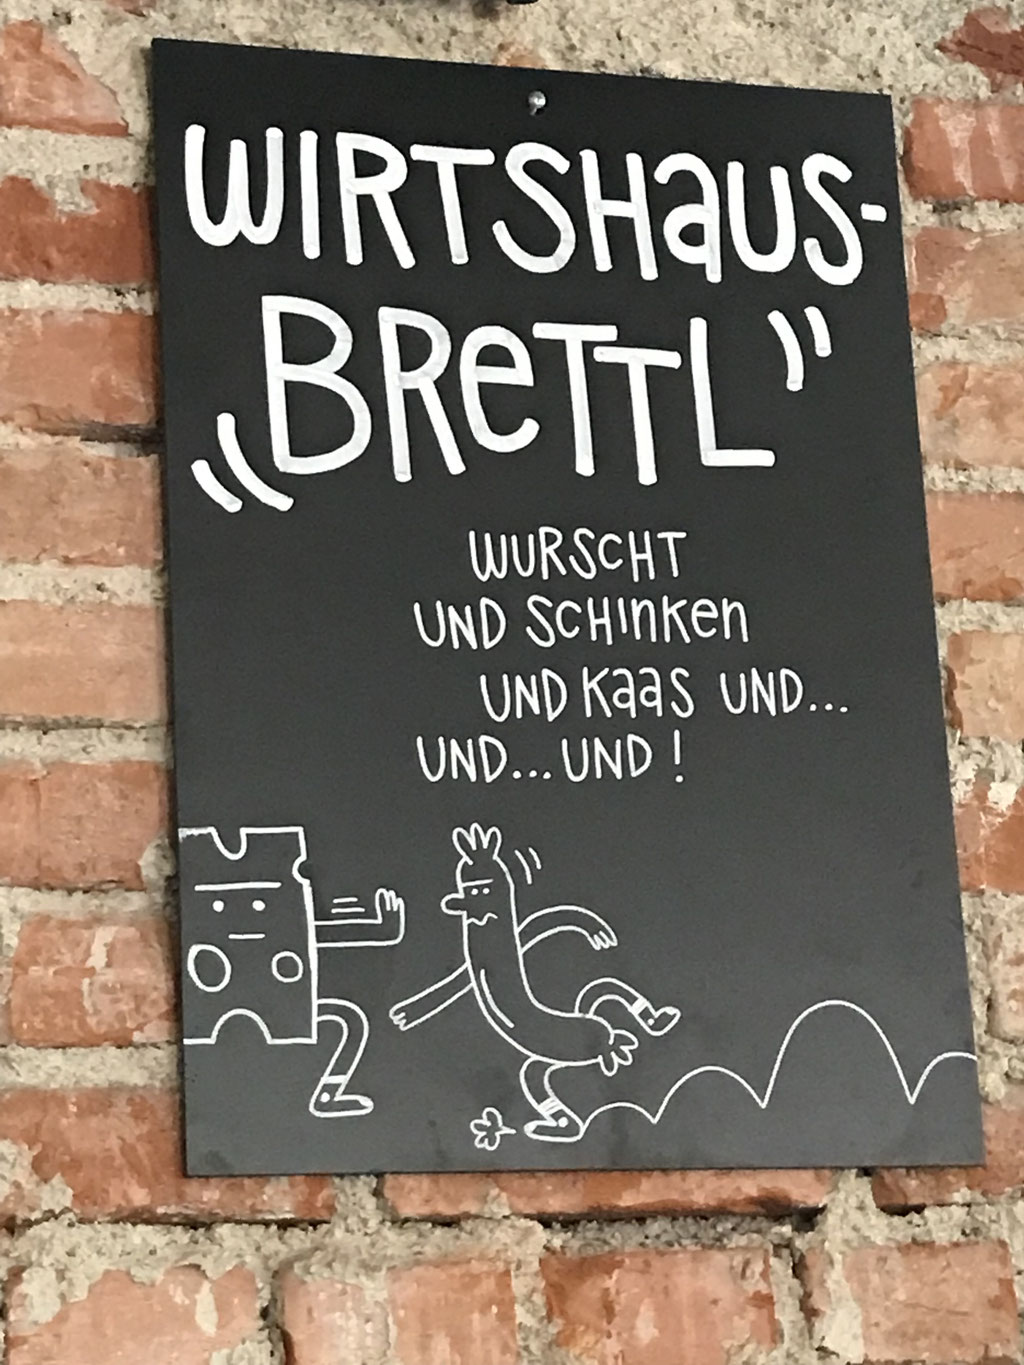 WIRTSHAUS-
„BRETTL”
WURSCHT
UND SCHINKEN
UND KAAS UND...
UND...UND !